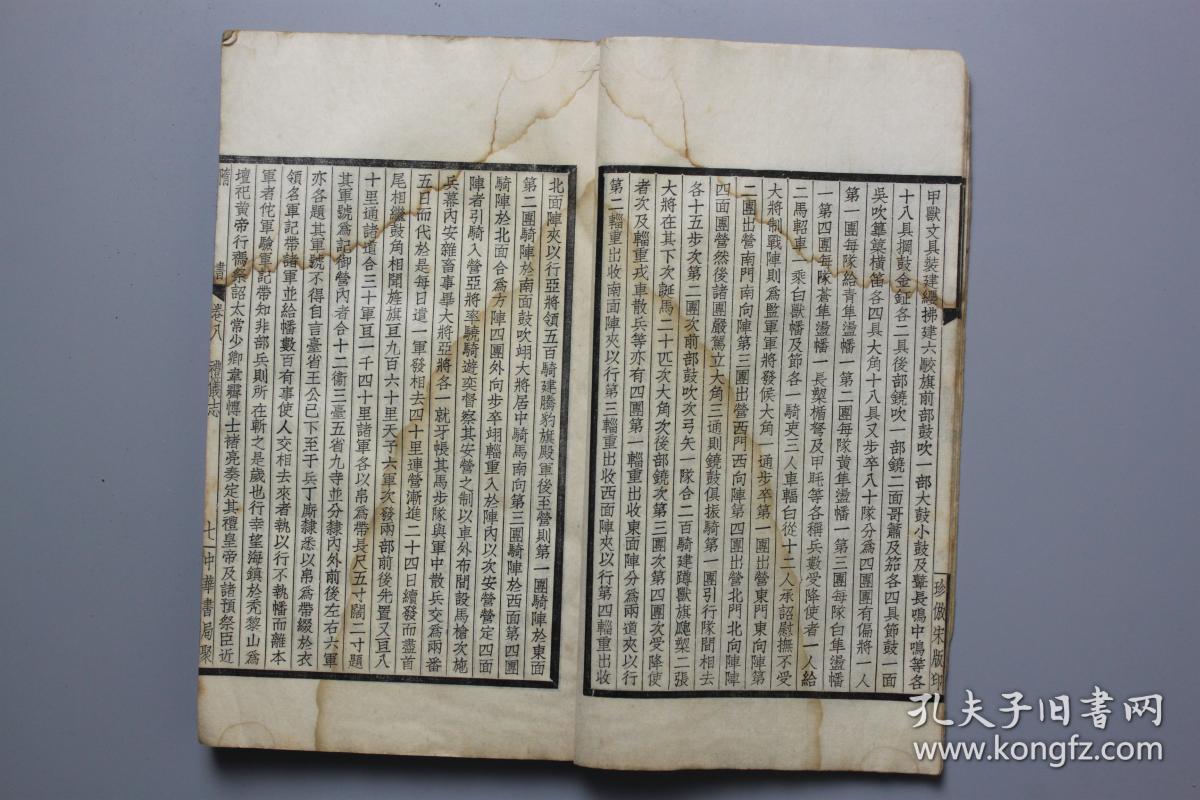 甲獸文具裝建纓拂建六駮旗前部鼓吹一部大鼓小鼓及鼙長鳴中鳴等各
十八具掆鼓金鉦各二具後部鐃吹一部鐃二面哥簫及笳各四具節鼓一面
吳吹篳篥橫笛各四具大角十八具又步卒八十隊分爲四團團有偏將一人
第一團每隊給青隼盪幡一第二團每隊黃隼盪幡一第三團每隊白隼盪幡
一第四團每隊蒼隼盪幡一長槊楯弩及甲毦等各稱兵數受降使者一人給
二馬軺車一乘白獸幡及節各一騎吏三人車輻白從十二人承詔慰撫不受
大將制戰陣則爲監軍軍將發候大角一通步卒第一團出營東門東向陣第
二團出營南門南向陣第三團出營西門西向陣第四團出營北門北向陣陣
四面團營然後諸團嚴駕立大角三通則鐃鼓俱振騎第一團引行隊間相去
各十五步次第二團次前部鼓吹次弓矢一隊合二百騎建蹲獸旗瓟槊二張
大將在其下次誕馬二十匹次大角次後部鐃次第三團次第四團次受降使
者次及輜重戎車散兵等亦有四團第一輜重出收東面陣分爲兩道夾以行
第二輜重出收南面陣夾以行第三輜重出收西面陣夾以行第四輜重出收
珍倣宋版印
北面陣夾以行亞將領五百騎建騰豹旗殿軍後至營則第一團騎陣於東面
第二團騎陣於南面鼓吹翊大將居中騎馬南向第三團騎陣於西面第四團
騎陣於北面合爲方陣四團外向步卒翊輜重入於陣內以次安營營定四面
陣者引騎入營亞將率驍騎遊奕督察其安營之制以車外布間設馬槍次施
兵幕內安雜畜事畢大將亞將各一就牙帳其馬步隊與軍中散兵交爲兩番
五日而代於是每日遣一軍發相去四十里連營漸進二十四日續發而盡首
尾相繼鼓角相聞旌旗亘九百六十里天子六軍次發兩部前後先置又亘八
十里通諸道合三十軍亘一千四十里諸軍各以帛爲帶長尺五寸闊二寸題
其軍號爲記御營內者合十二衞三臺五省九寺並分隸內外前後左右六軍
亦各題其軍號不得自言臺省王公已下至于兵丁厮隸悉以帛爲帶綴於衣
領名軍記帶諸軍並給幡數百有事使人交相去來者執以行不執幡而離本
軍者佗軍驗軍記帶知非部兵則所在斬之是歲也行幸望海鎮於禿黎山爲
壇祀黃帝行禡祭詔太常少卿韋霽博士褚亮奏定其禮皇帝及諸預祭臣近
隋書 卷八 禮儀志 七 中華書局聚
孔夫子旧書网
www.kongfz.com